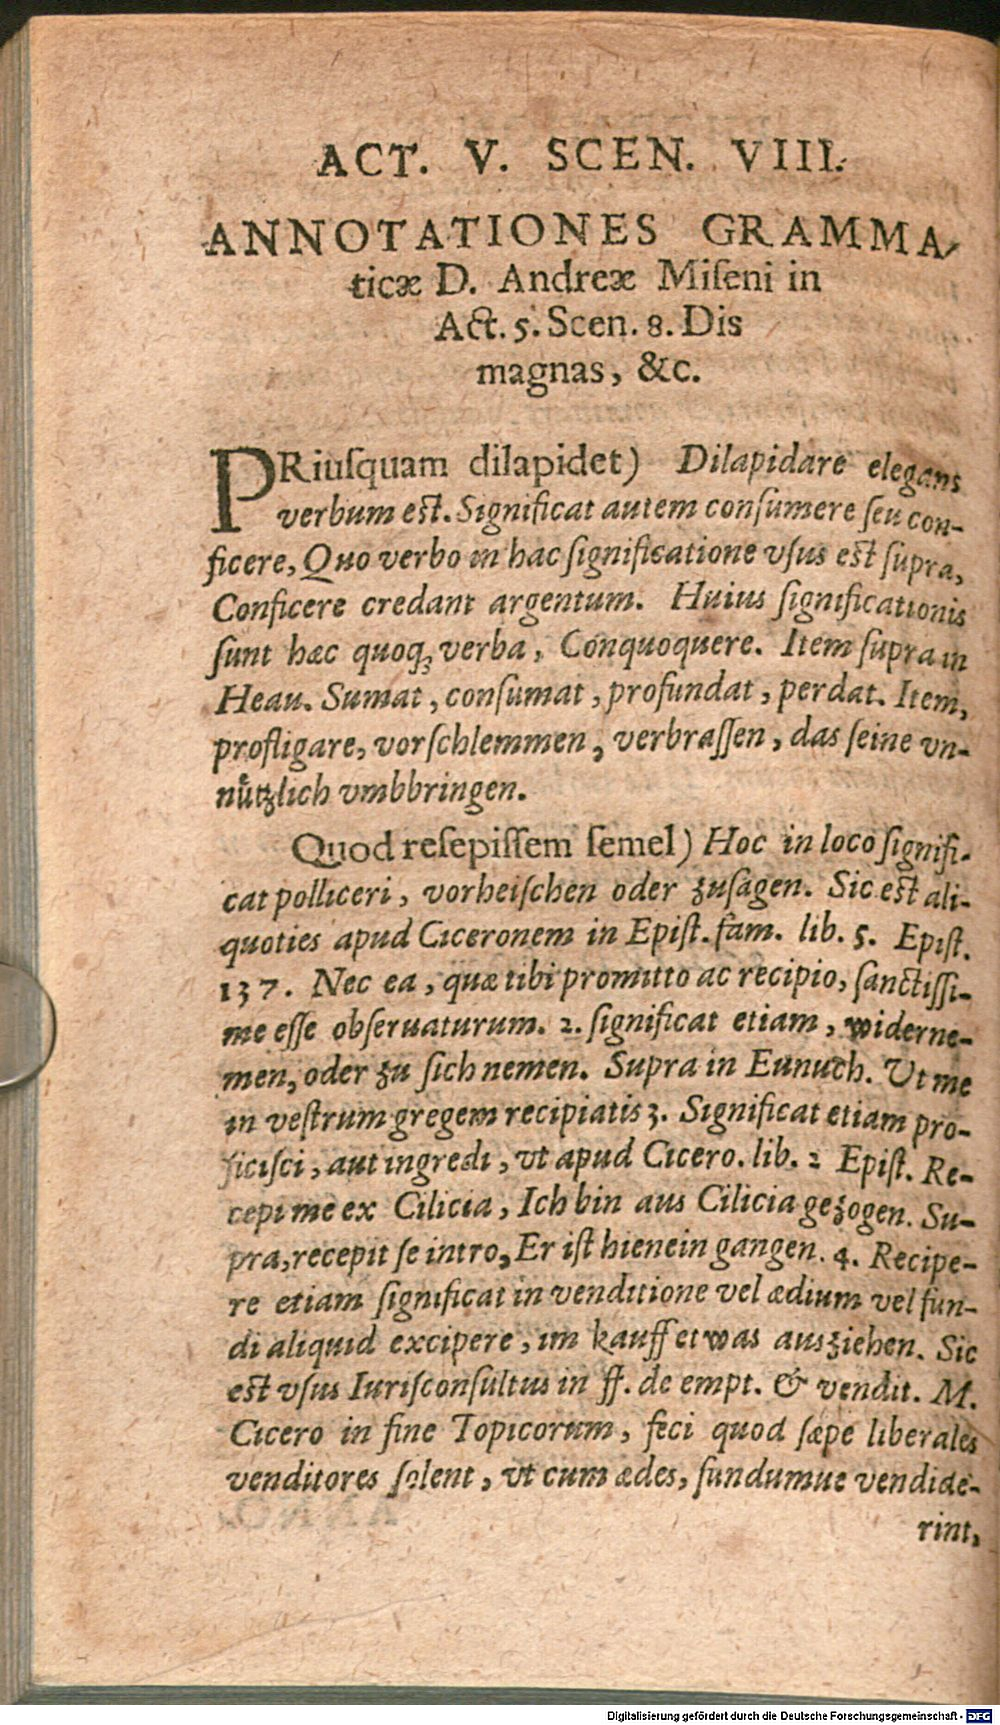 ACT. V. SCEN. VIII.
ANNOTATIONES GRAMMA-
ticæ D. Andreæ Miſeni in
Act. 5. Scen. 8. Dis
magnas, &c.
PRiuſquam dilapidet) Dilapidare elegans
verbum est. Significat autem conſumere ſeu con-
ficere, Quo verbo in hac ſignificatione vſus est ſupra,
Conficere credant argentum. Huius ſignificationis
ſunt hæc quoq; verba, Conquoquere. Item ſupra in
Heau. Sumat, conſumat, profundat, perdat. Item,
profligare, vorſchlemmen, verbraſſen, das ſeine vn-
nuͤtzlich vmbbringen.
Quod reſepiſſem ſemel) Hoc in loco ſignifi-
cat polliceri, vorheiſchen oder zuſagen. Sic est ali-
quoties apud Ciceronem in Epiſt. fam. lib. 5. Epiſt.
137. Nec ea, quæ tibi promitto ac recipio, ſanctiſſi-
me eſſe obſeruaturum. 2. ſignificat etiam, widerne-
men, oder zu ſich nemen. Supra in Eunuch. Ut me
in veſtrum gregem recipiatis 3. Significat etiam pro-
ficiſci, aut ingredi, vt apud Cicero. lib. 2 Epiſt. Re-
cepi me ex Cilicia, Ich bin aus Cilicia gezogen. Su-
pra, recepit ſe intro, Er iſt hienein gangen. 4. Recipe-
re etiam ſignificat in venditione vel ædium vel fun-
di aliquid excipere, im kauff etwas ausziehen. Sic
est vſus Iuriſconſultus in ff. de empt. & vendit. M.
Cicero in fine Topicorum, feci quod ſæpe liberales
venditores ſolent, vt cum ædes, fundumue vendide-
rint,
Digitalisierung gefördert durch die Deutsche Forschungsgemeinschaft - DFG